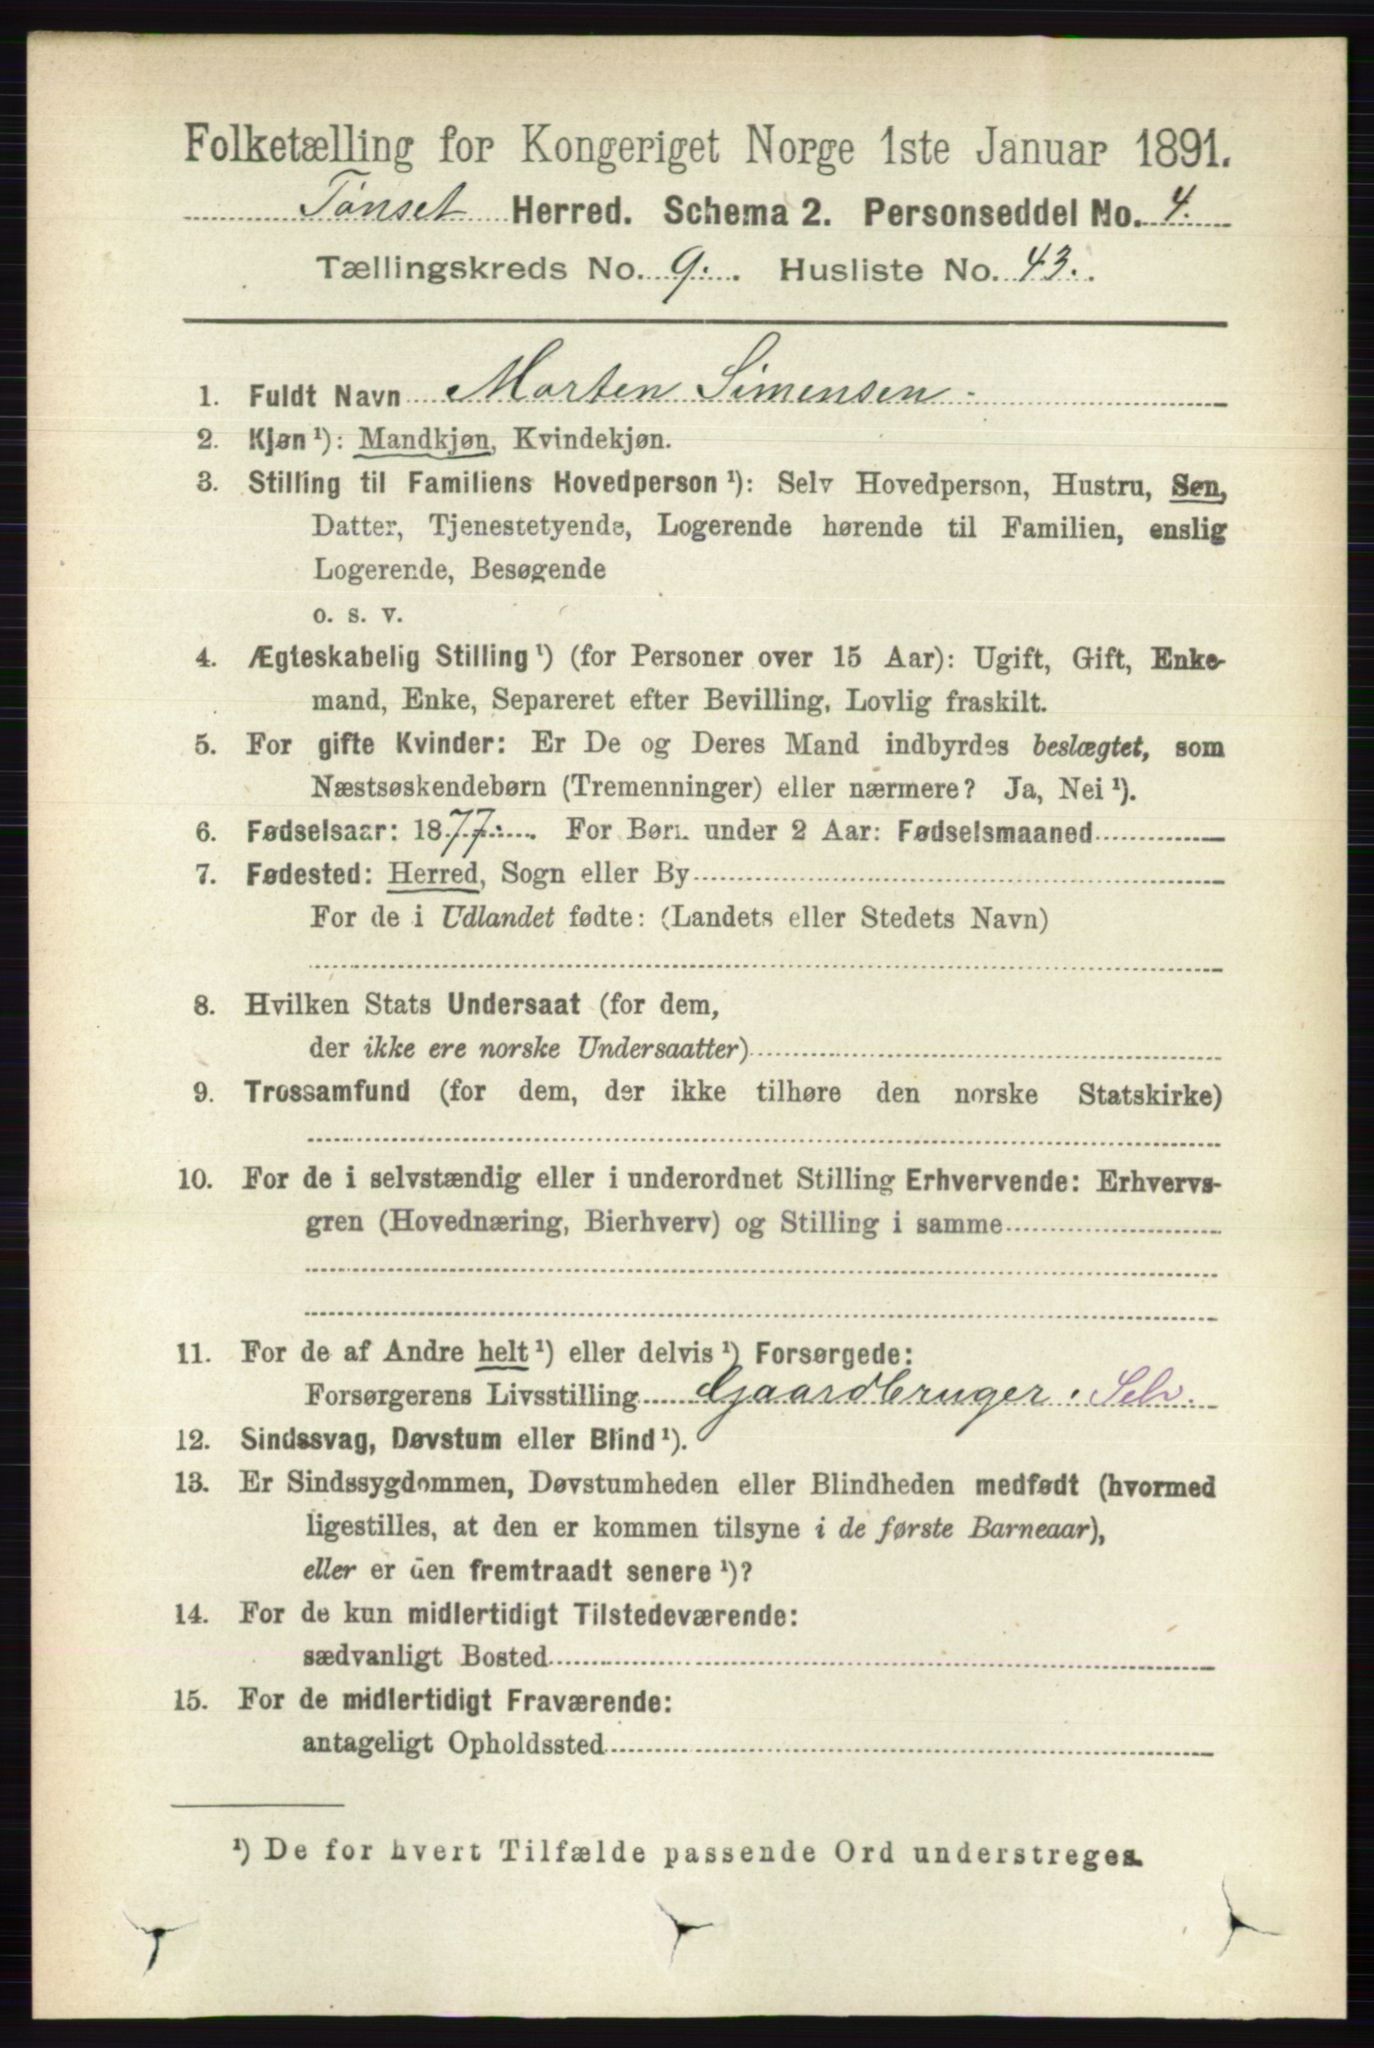 Folketælling for Kongeriget Norge 1ste Januar 1891.
Tønset Herred. Schema 2. Personseddel No. 4.
Tællingskreds No. 9. Husliste No. 43.
1. Fuldt Navn Morten Simensen
2. Kjøn¹): Mandkjøn, Kvindekjøn.
3. Stilling til Familiens Hovedperson¹): Selv Hovedperson, Hustru, Søn,
Datter, Tjenestetyende, Logerende hørende til Familien, enslig
Logerende, Besøgende
o. s. v.
4. Ægteskabelig Stilling¹) (for Personer over 15 Aar): Ugift, Gift, Enke-
mand, Enke, Separeret efter Bevilling, Lovlig fraskilt.
5. For gifte Kvinder: Er De og Deres Mand indbyrdes beslægtet, som
Næstsøskendebørn (Tremenninger) eller nærmere? Ja, Nei¹).
6. Fødselsaar: 1877. For Børn under 2 Aar: Fødselsmaaned
7. Fødested: Herred, Sogn eller By
For de i Udlandet fødte: (Landets eller Stedets Navn)
8. Hvilken Stats Undersaat (for dem,
der ikke ere norske Undersaatter)
9. Trossamfund (for dem, der ikke tilhøre den norske Statskirke)
10. For de i selvstændig eller i underordnet Stilling Erhvervende: Erhvervs-
gren (Hovednæring, Bierhverv) og Stilling i samme
11. For de af Andre helt¹) eller delvis¹) Forsørgede:
Forsørgerens Livsstilling Gaardbruger. Selv.
12. Sindssvag, Døvstum eller Blind¹).
13. Er Sindssygdommen, Døvstumheden eller Blindheden medfødt (hvormed
ligestilles, at den er kommen tilsyne i de første Barneaar),
eller er den fremtraadt senere¹)?
14. For de kun midlertidigt Tilstedeværende:
sædvanligt Bosted
15. For de midlertidigt Fraværende:
antageligt Opholdssted
¹) De for hvert Tilfælde passende Ord understreges.